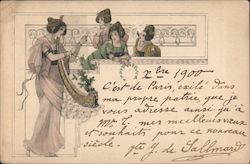 Xbre 1900
C'est de Paris, exilé dans
ma propre patrie que je
vous adresse ainsi qu'à
Mr T. mes meilleurs vœux
et souhaits pour ce nouveau
siècle. Y. de Sallmard